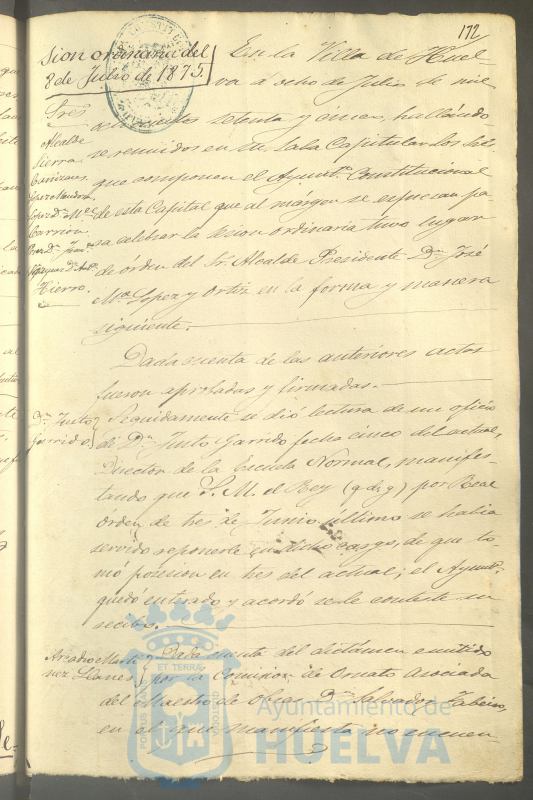 172
sion ordinaria del
8 de Julio de 1875.
En la Villa de Huel
va á ocho de Julio de mil
ochocientos setenta y cinco, hallándo
se reunidos en su Sala Capitular los Sres.
que componen el Ayuntº. Constitucional
de esta Capital que al márgen se espresan pa
ra celebrar la sesion ordinaria tuvo lugar
de órden del Sr. Alcalde Presidente Dn. José
Mª. Lopez y Ortiz en la forma y manera
siguiente.
Sres
Alcalde
Sierra
Cañizares
Lopez dn. Mel.
Carrion
Vazquez dn. Antº.
Hierro.
Dada cuenta de las anteriores actas
fueron aprobadas y firmadas.
Dn. Justo
Garrido
Seguidamente se dió lectura de un oficio
de Dn. Justo Garrido fecha cinco del actual,
Director de la Escuela Normal, manifes-
tando que S. M. el Rey (q. d. g) por Real
órden de tres de Junio último se habia
servido reponerle en dicho cargo, de que to-
mó posesion en tres del actual; el Ayuntº.
quedó enterado y acordó se le conteste su
recibo.
Arcadio Marti
nez Llanes
Dada cuenta del dictámen emitido
por la Comision de Ornato Asociada
del Maestro de obras Dn. Salvador
en el que manifiesta no encuen
PORTUS MARIS
ET TERRÆ
CUSTODIA
Ayuntamiento de
HUELVA